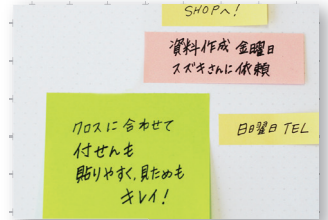 SHOPへ!
資料作成 金曜日
スズキさんに依頼
日曜日 TEL
クロスに合わせて
付せんも
貼りやすく、見ためも
キレイ!